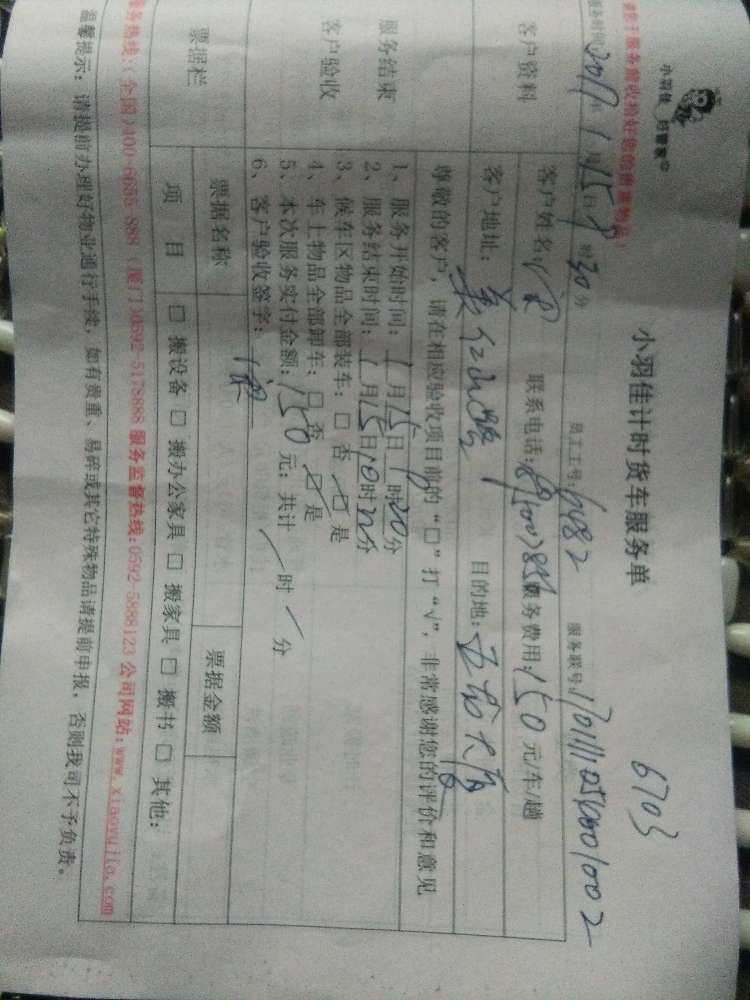 小羽佳 好管家
小羽佳计时货车服务单
6703
服务时间:2017年1月15日9时30分 员工工号:6482 服务联号:
客户资料
客户姓名: 联系电话: 服务费用:150元/车/趟
客户地址: 目的地:
尊敬的客户,请在相应验收项目前的“□”打“√”,非常感谢您的评价和意见
服务结束
客户验收
1、服务开始时间:1月15日9时20分
2、服务结束时间:1月15日10时20分
3、候车区物品全部装车:□否 □是
4、车上物品全部卸车:□否 □是
5、本次服务实付金额:150元;共计 时 分
6、客户验收签字:
票据栏
票据名称 票据金额
项 目 □搬设备 □搬办公家具 □搬家具 □搬书 □其他:
服务热线:(全国)400-6655-888 (厦门)0592-5178888 服务监督热线:0592-5888123 公司网站:www.xiaoyujia.com
温馨提示:请提前办理好物业通行手续,如有贵重、易碎或其它特殊物品请提前申报,否则我司不予负责。